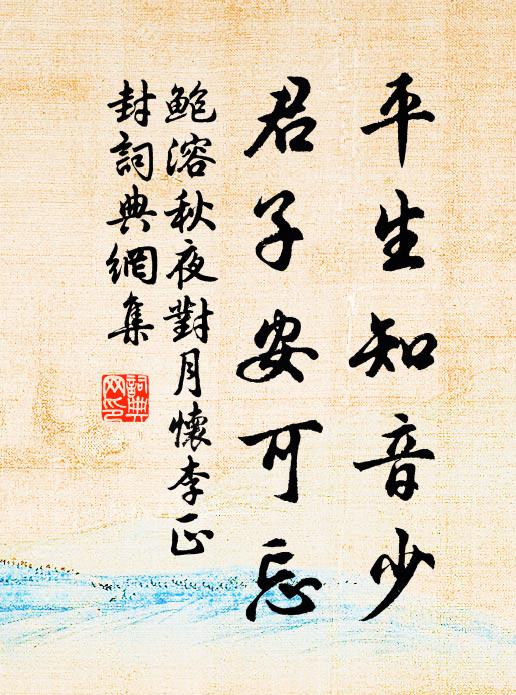 平生知音少
君子安可忘
鲍溶秋夜對月懷李正
封詞典網集
詞典
网印